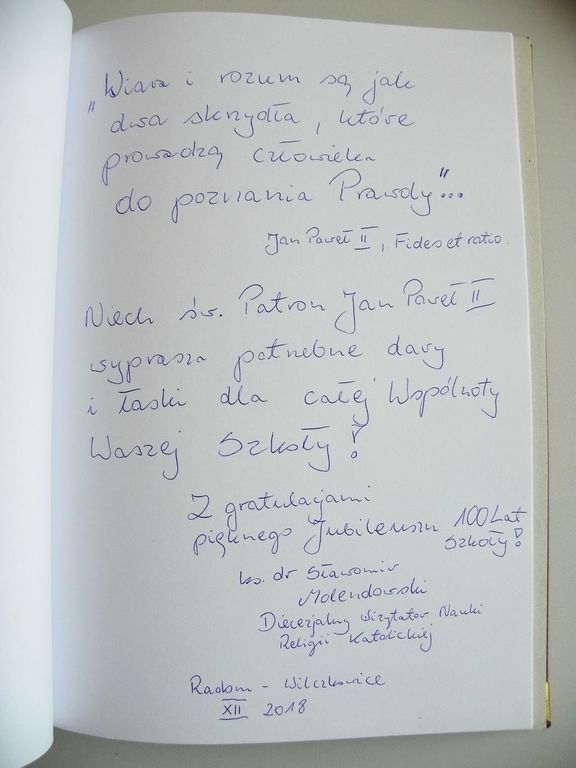 "Wiara i rozum są jak
dwa skrzydła, które
prowadzą człowieka
do poznania Prawdy"...
Jan Paweł II, Fides et ratio.
Niech św. Patron Jan Paweł II
wyprasza potrzebne dary
i łaski dla całej Wspólnoty
Waszej Szkoły!
Z gratulacjami
pięknego Jubileuszu 100 Lat
Szkoły!
ks. dr Sławomir
Molendowski
Diecezjalny Wizytator Nauki
Religii Katolickiej
Radom - Wilczkowice
XII 2018